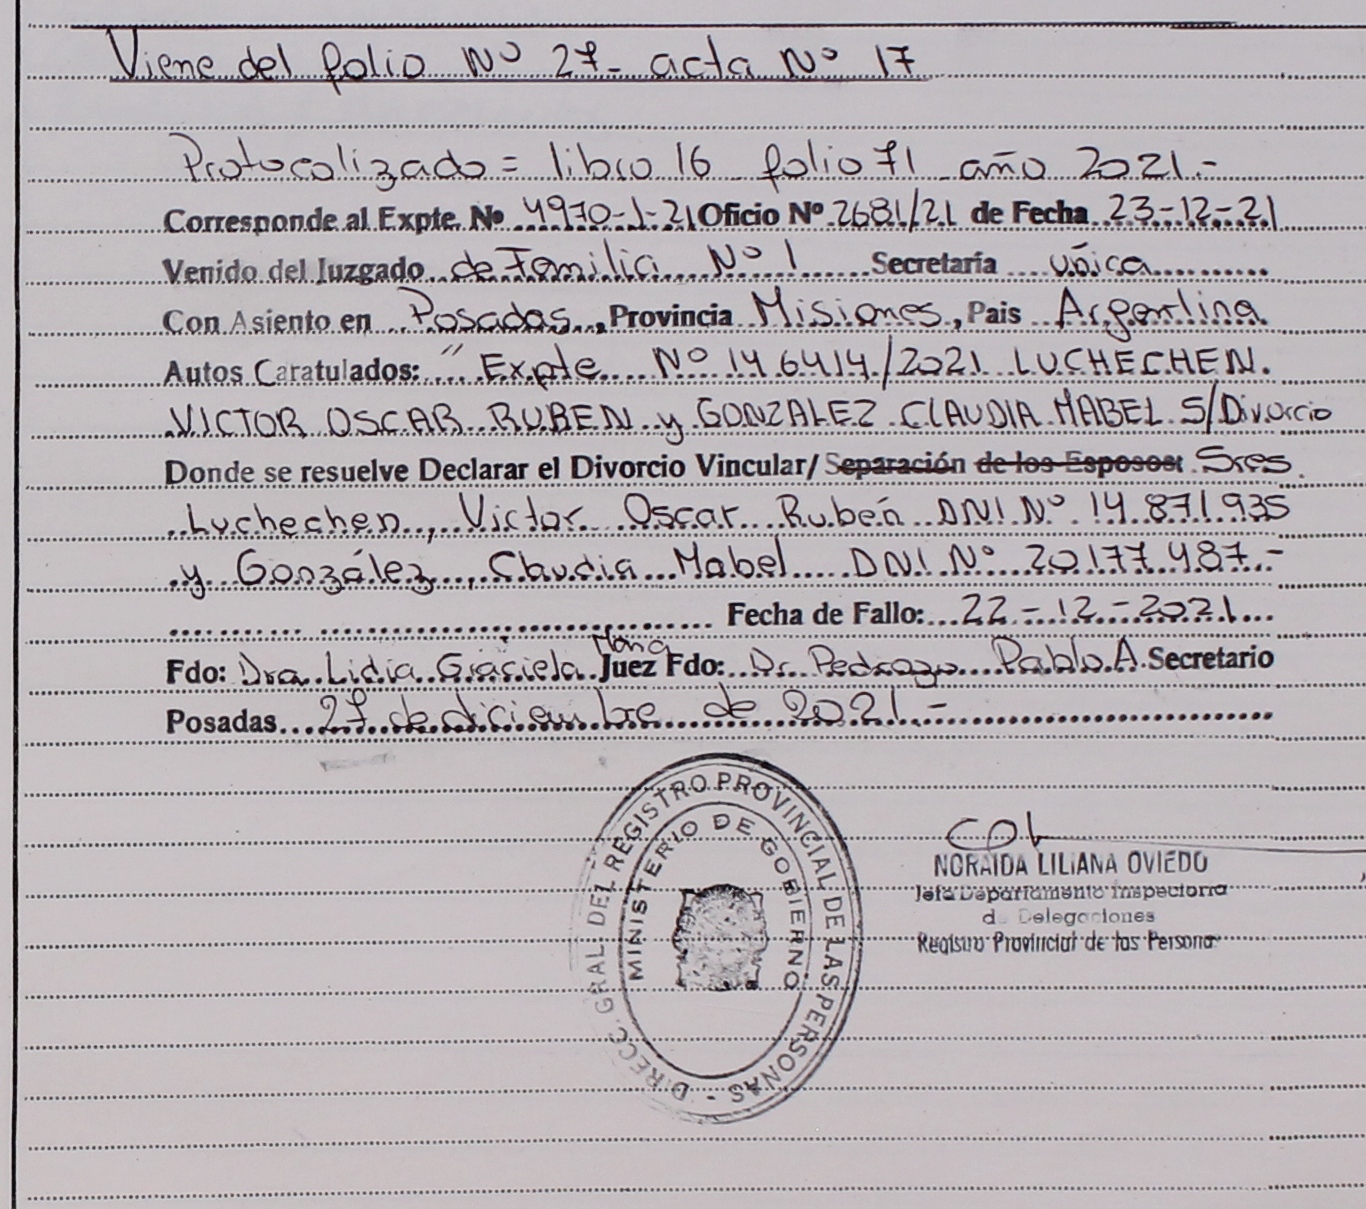 Viene del folio Nº 27- acta Nº 17
Protocolizado = libro 16 folio 71 año 2021.-
Corresponde al Expte. Nº 4970-J-21 Oficio Nº 2681/21 de Fecha 23-12-21
Venido del Juzgado de Familia Nº 1 Secretaría única
Con Asiento en Posadas, Provincia Misiones, Pais Argentina
Autos Caratulados: "Expte Nº 146414/2021 LUCHECHEN.
VICTOR OSCAR RUBEN y GONZALEZ CLAUDIA MABEL S/Divorcio
Donde se resuelve Declarar el Divorcio Vincular/ Separación de los Esposos: Sres
Luchechen, Victor Oscar Rubén DNI Nº 14.871.935
y González, Claudia Mabel DNI Nº 20.177.487.-
Fecha de Fallo: 22-12-2021
Fdo: Dra. Lidia Graciela Juez Fdo: Dr. Pedrozo Pablo A. Secretario
Posadas 27 de diciembre de 2021.-
DIRECC. GRAL. DEL REGISTRO PROVINCIAL DE LAS PERSONAS -
MINISTERIO DE GOBIERNO
NORAIDA LILIANA OVIEDO
Jefa Departamento Inspectoria
d Delegaciones
Registro Provincial de las Persona